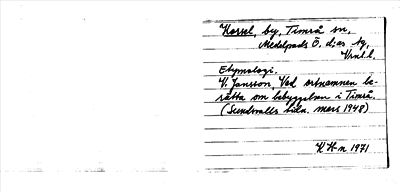 Korsel, by, Timrå sn,
Medelpads Ö. d:as tg,
Vrnl.l.
Etymologi.
V. Jansson, Vad ortnamnen be-
rätta om bebyggelsen i Timrå.
(Sundsvalls tidn. mars 1948)
K H-n 1971